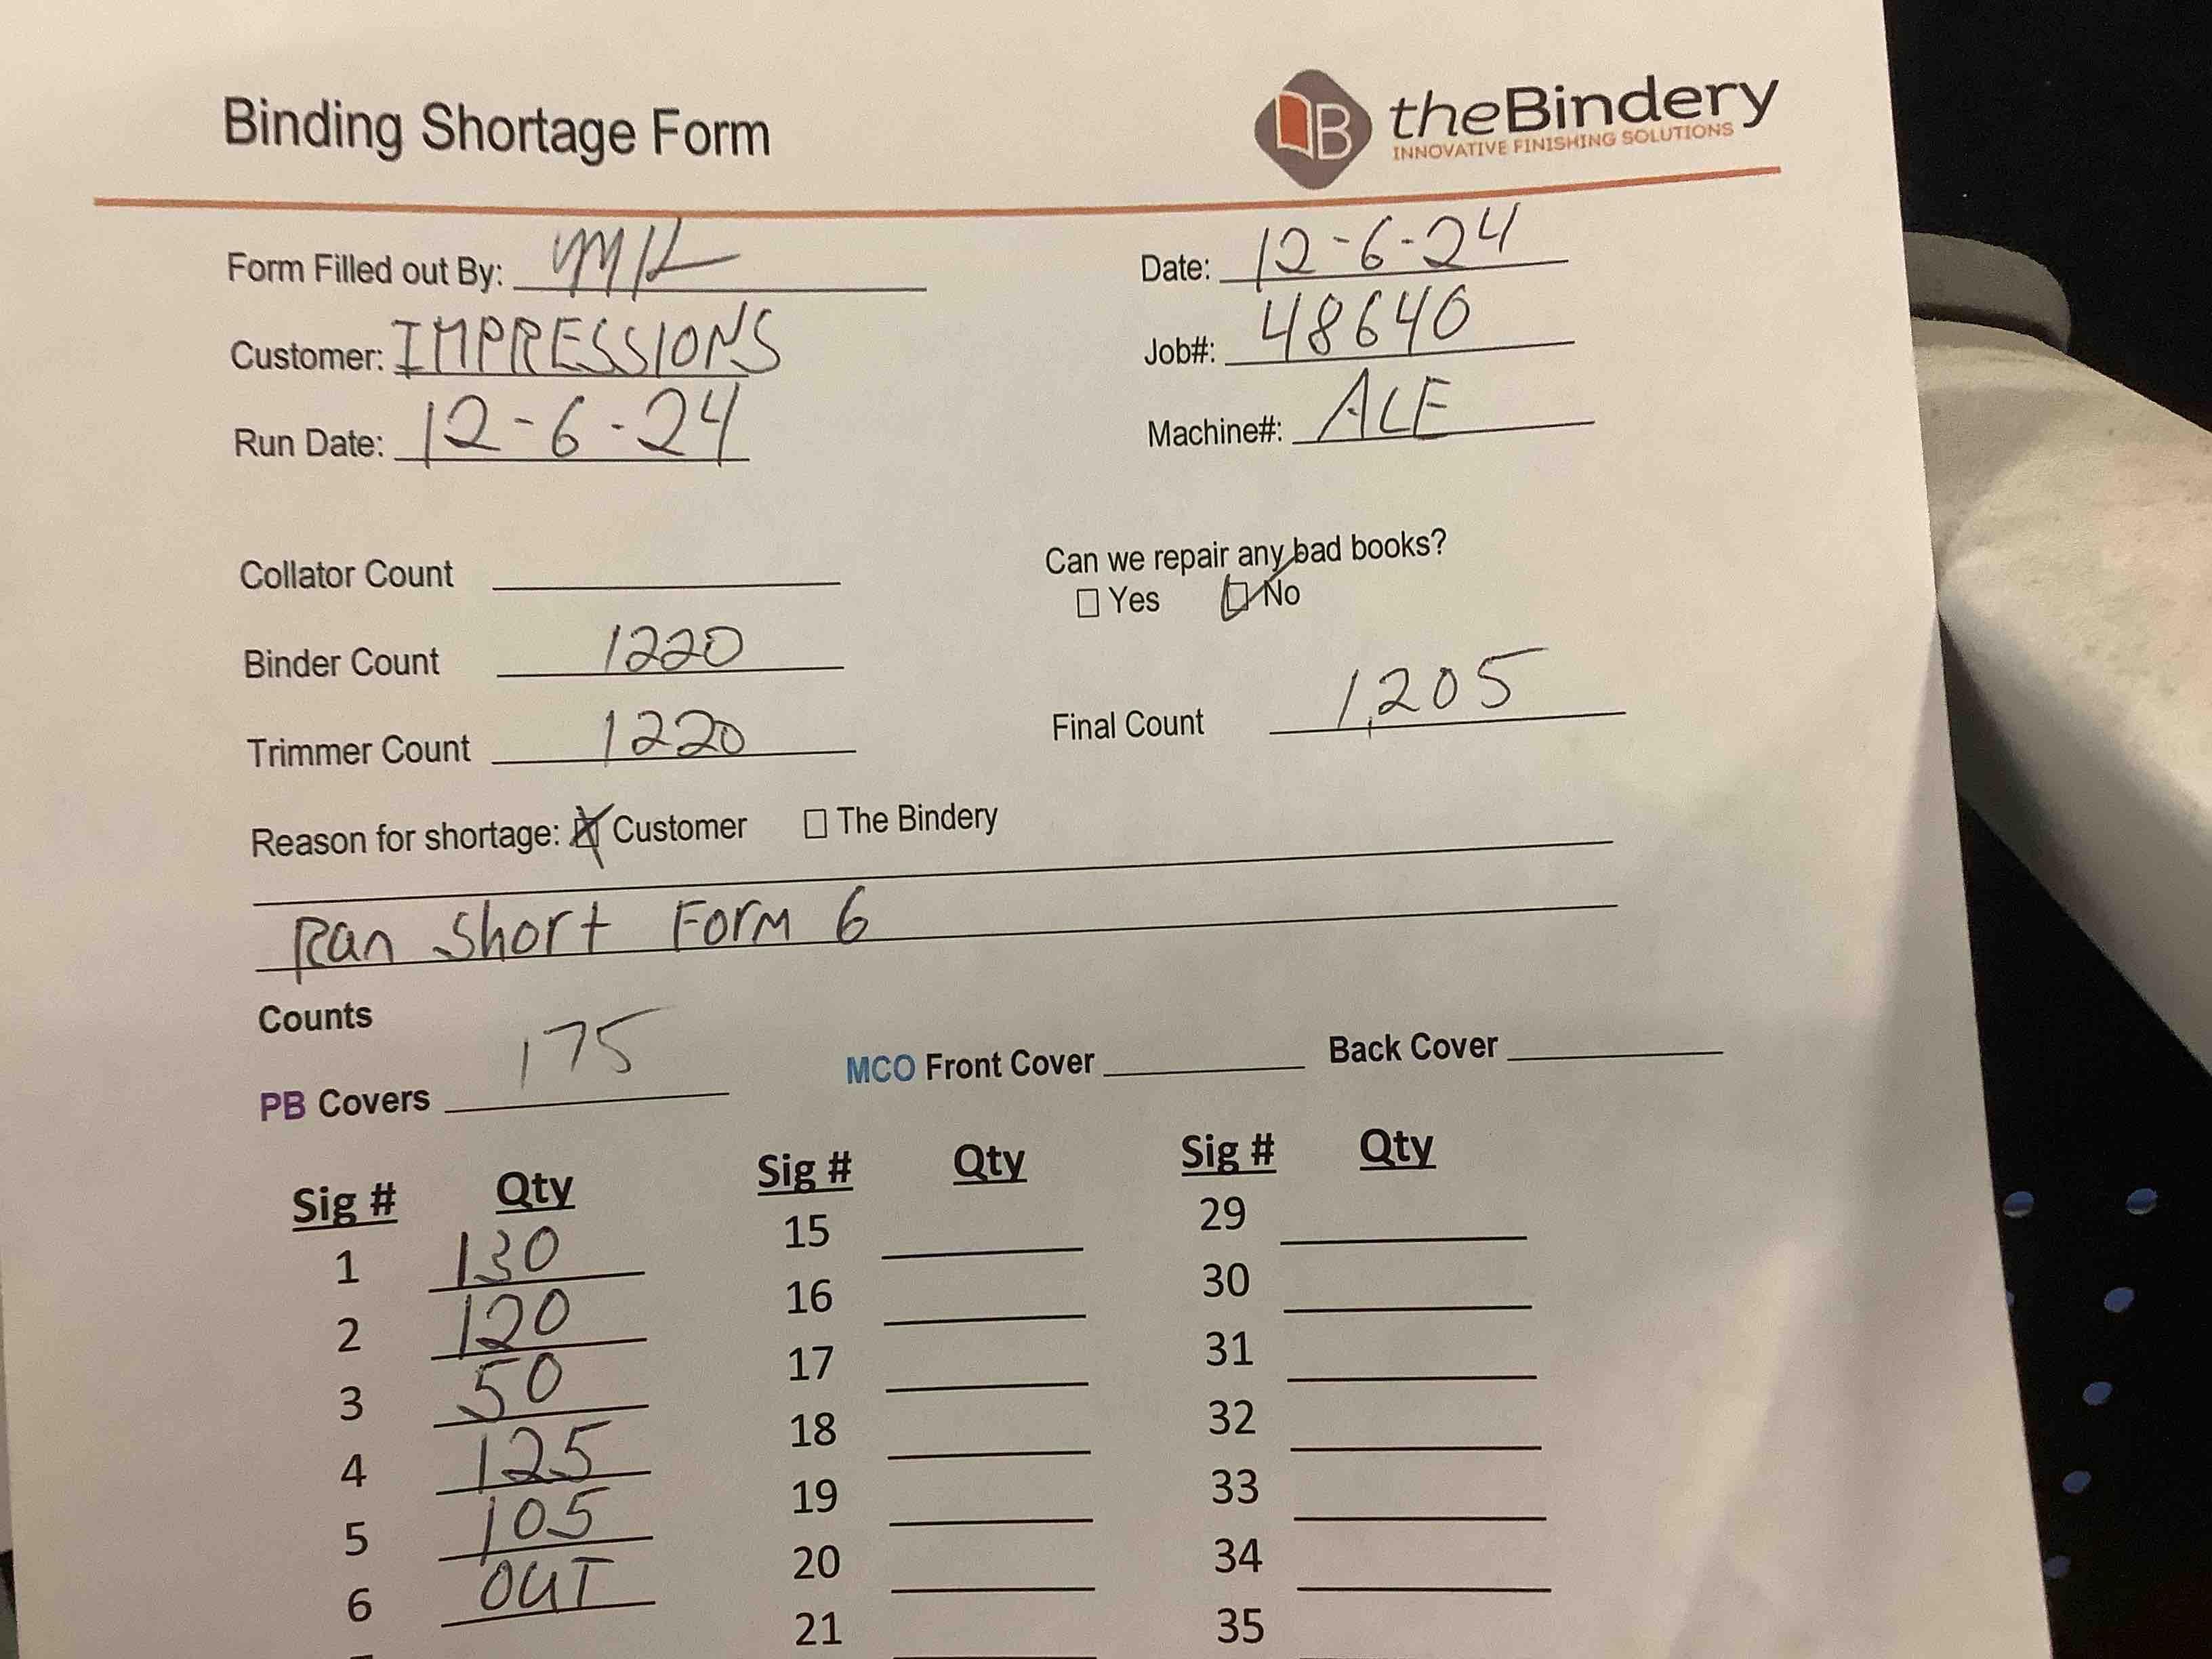 Binding Shortage Form
B theBindery
INNOVATIVE FINISHING SOLUTIONS
Form Filled out By:
Date: 12-6-24
Customer: IMPRESSIONS
Job#: 48640
Run Date: 12-6-24
Machine#: ACE
Collator Count
Can we repair any bad books?
Yes No
Binder Count 1220
Final Count 1,205
Trimmer Count 1220
Reason for shortage: Customer The Bindery
Ran Short Form 6
Counts
PB Covers 175 MCO Front Cover Back Cover
Sig # Qty Sig # Qty Sig # Qty
1 130 15 29
2 120 16 30
3 50 17 31
4 125 18 32
5 105 19 33
6 OUT 20 34
21 35